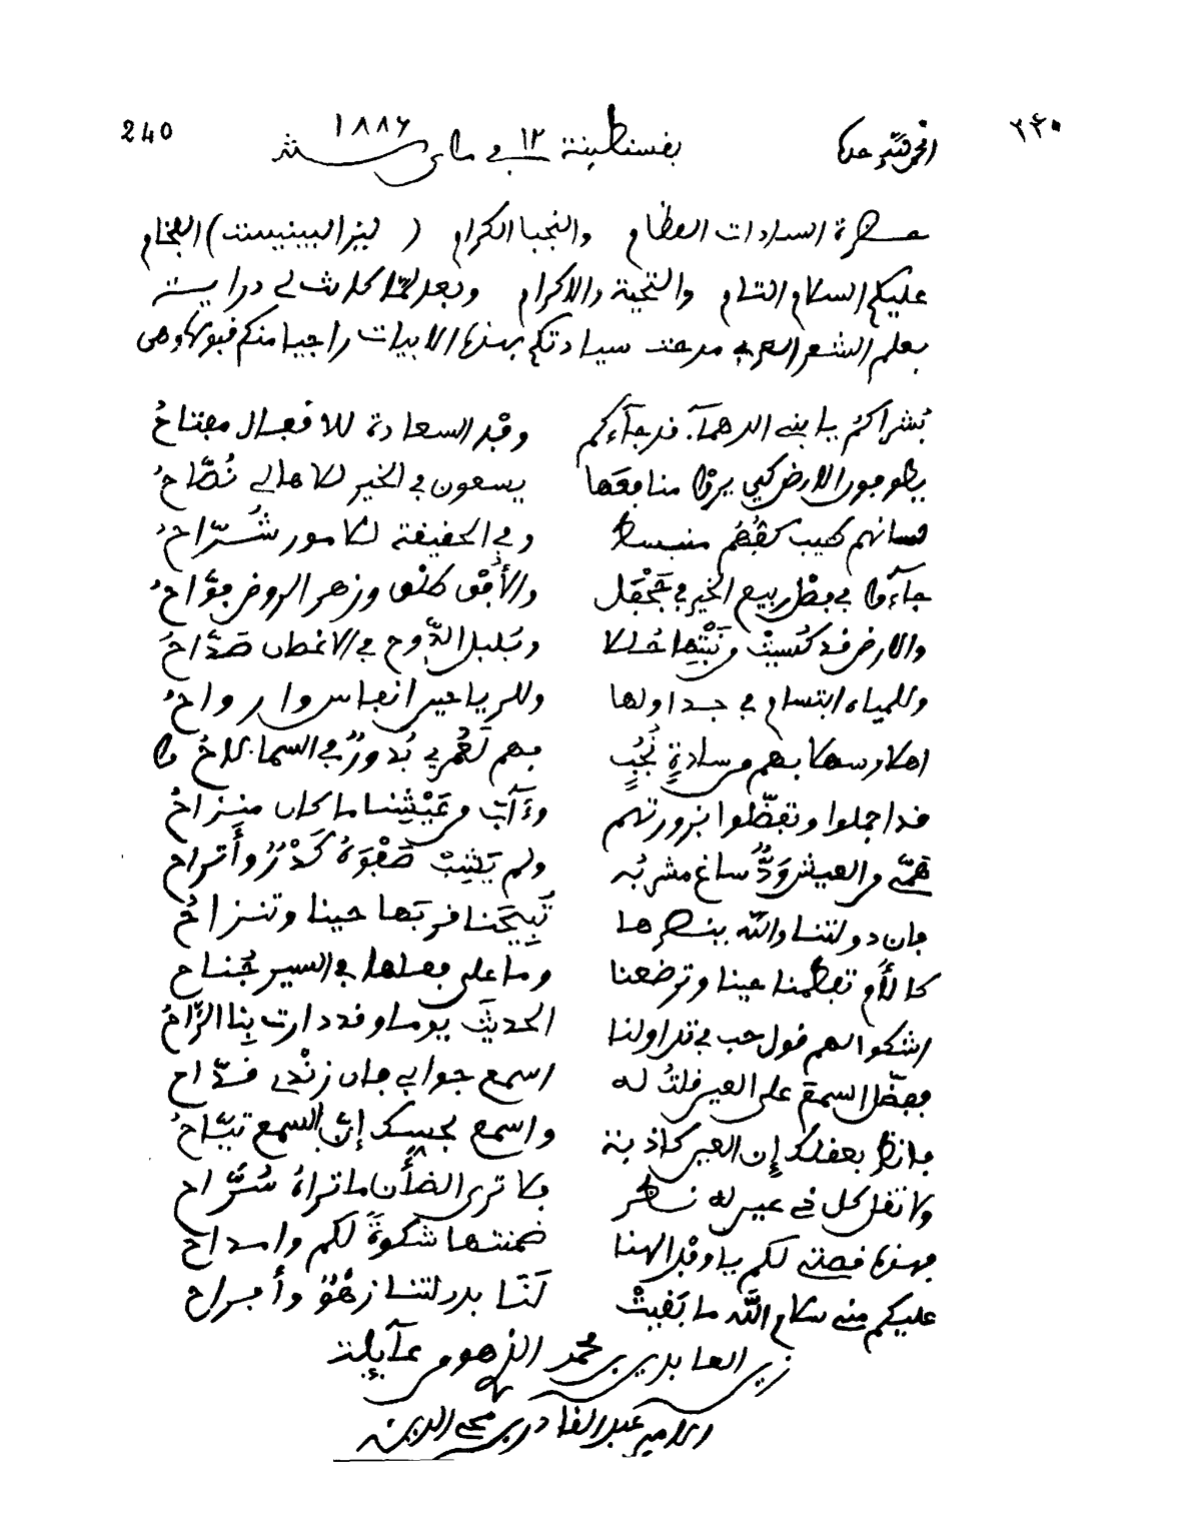 240 بفسنطينة ١٢ في ماي سنة ١٨٨٦ الحمد لله وحده ٢٤٠
حضرة السادات العظام والنجبا الكرام ( ليز البينيست ) الفخام
عليكم السلام التام والتحية والاكرام وبعد لما كانت لي دراية
بعلم الشعر العربي مدحت سيادتكم بهذه الابيات راجيا منكم قبولها وهي
بُشراكم يا بني الدهماء قد جاءكم وفد السعادة للافضال مفتاحُ
يطوفون الارض كي يروا منافعها يسعون في الخير للاهالي نُصّاحُ
لسانهم طيب كفهم منبسط وفي الحقيقة للامور شُرّاحُ
جاءوا في فصل ربيع الخير في جحفل والأفق طلق وزهر الروض فوّاحُ
والارض قد كُسيتْ من نَبْتِها حُللا وبلبل الدَّوح في الاغصان صدّاحُ
وللمياه ابتسام في جداولها وللرياحين انفاس وارواحُ
اهلا وسهلا بهم من سادةٍ نُجُبٍ بهم لعُمري بُدورٌ في السما لاحُوا
قد اجملوا وتفضّلوا بزورتهم وءآبَ من عَيْشِنا ما كان ينزاحُ
من العيش وَدٌّ ساغ مشربُه ولم يَشِبْ صَفْوَهُ كَدْرٌ وأتراحُ
فإن دولتنا والله ينصرها تُبِيحنا قربها حينا وتنزاحُ
كالأُمِّ تفطمنا حينا وترضعنا وما على فعلها في السير جُناح
اشكوا لهم قول حب في تداولنا الحديثَ يوما وقد دارت بِنا الرّاحُ
بفضّل السمع على العين قلتُ له اسمع جوابي فان زنْدي قدّاح
فانظر بعقلك إن العين كاذبة واسمع بحسك إنّ السمع تيّاحُ
ولا تقل كل ذي عين له نظر فلا ترى الضأن ما تراهُ سُرّاح
فهذه قصتي لكم يا وفد الهنا ضمنتها شكوةً لكم وامداح
عليكم مني سلام الله ما بَقيتْ لَنَا بدولتنا زهُوٌ وأفراح
زين العابدين بن محمد الزهو من عآيلة
الامير عبد القادر بن محي الدين